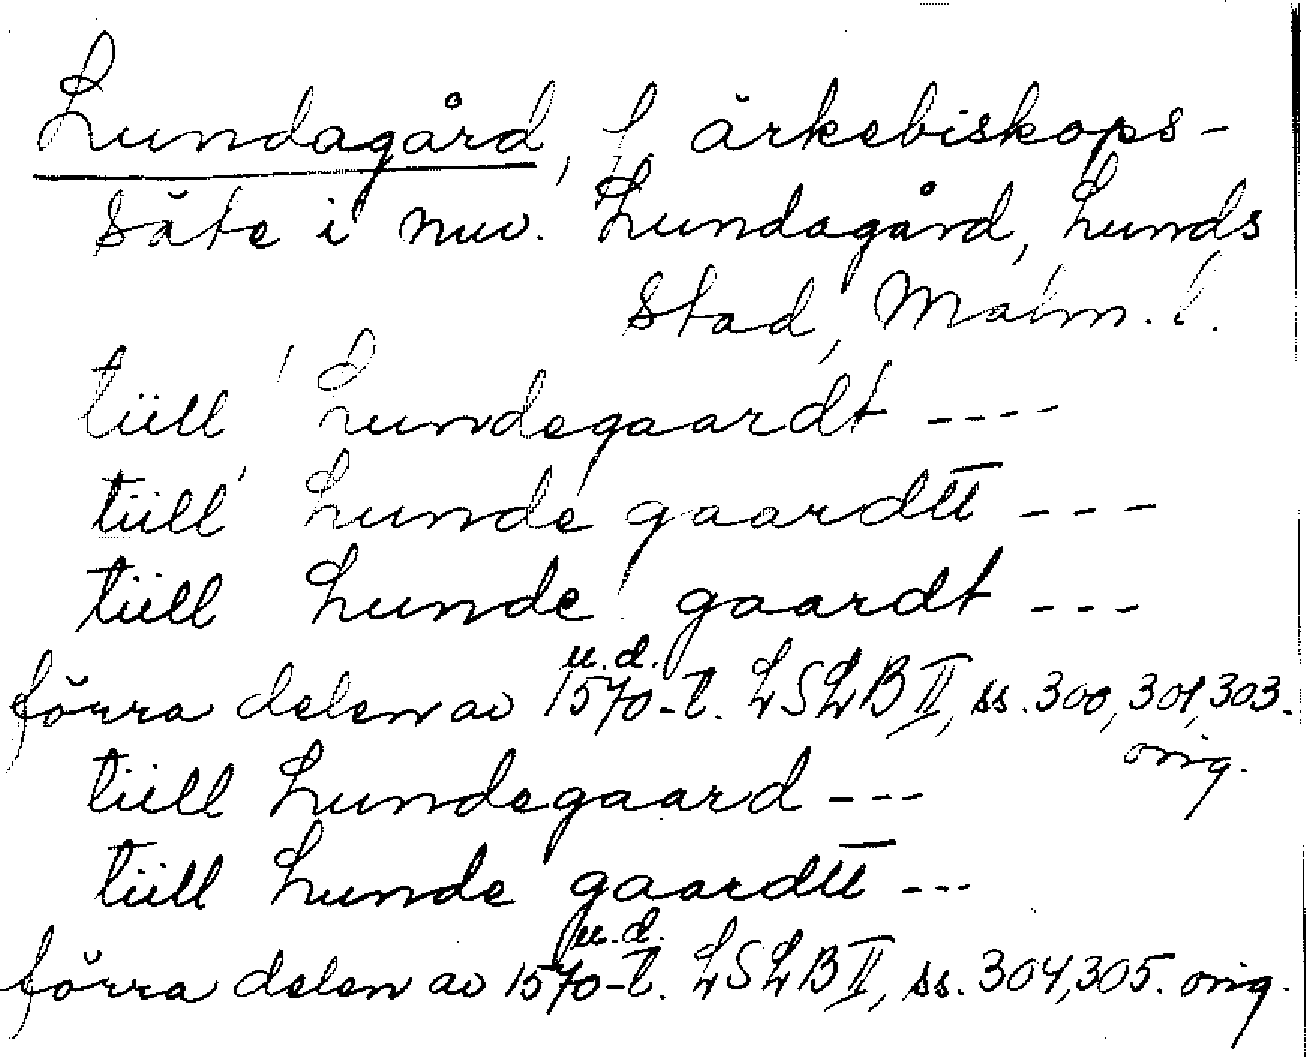 Lundagård, f ärkebiskops-
säte i nuv. Lundagård, Lunds
stad, Malm. l.
tüll Lundegaardt ----
tüll Lunde gaardtt ---
tüll Lunde gaardt ---
u. d.
förra delen av 1570-t. LSLB II, ss. 300, 301, 303.
orig.
tüll Lundegaard ---
tüll Lunde gaardtt ---
u. d.
förra delen av 1570-t. LSLB II, ss. 304, 305. orig.